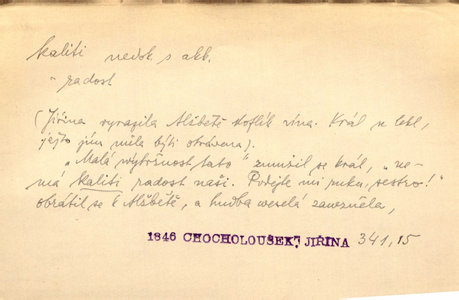 kaliti nedok s ak.
- radost
(Jiřina vyrazila Alžbětě koflík vína. Král se lekl,
jejž jím měla býti otrávena).
„Malá výtržnost tato" zmužil se král, „ne-
má kaliti radost naši. Podejte mi ruku, sestro!"
obrátil se k Alžbětě, a hudba veselá zavzněla,
1846 CHOCHOLOUŠEK, JIŘINA 341,15